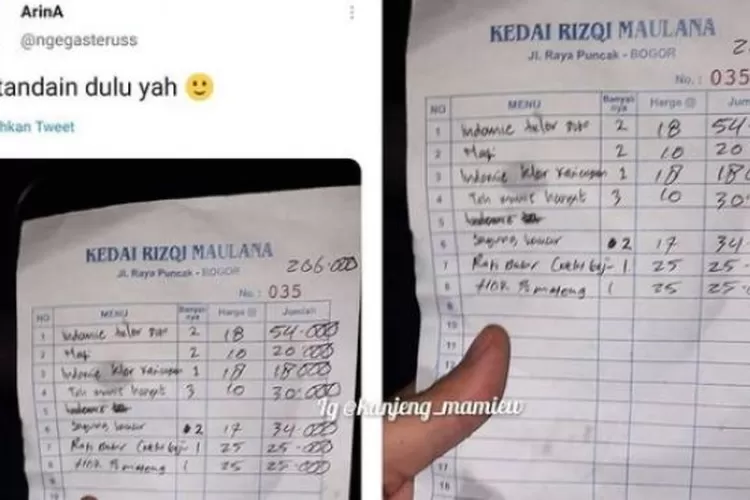 ArinA
@ngegasteruss
tandain dulu yah 🙂
hkan Tweet
KEDAI RIZQI MAULANA
Jl. Raya Puncak - BOGOR
206.000
No. : 035
NO MENU Banyak nya Harga @ Jumlah
1 Indomie telor 2 18 54.000
2 2 10 20.000
3 Indomie 1 18 18.000
4 Teh manis hangat 3 10 30.000
5 Indomie
6 Jagung bakar 2 17 34.000
7 Roti Bakar 1 25 25.000
8 mateng 1 25 25.000
Ig @kanjeng_mamiew
KEDAI RIZQI MAULANA
Jl. Raya Puncak - BOGOR
2
No. : 035
NO MENU Banyak nya Harga @ Jum
1 Indomie telor 2 18 54
2 2 10 20
3 Indomie 1 18 18
4 Teh manis hangat 3 10 30
5 Indomie
6 Jagung bakar 2 17 34
7 Roti Bakar 1 25 25
8 mateng 1 25 25
9
10
11
12
17
18